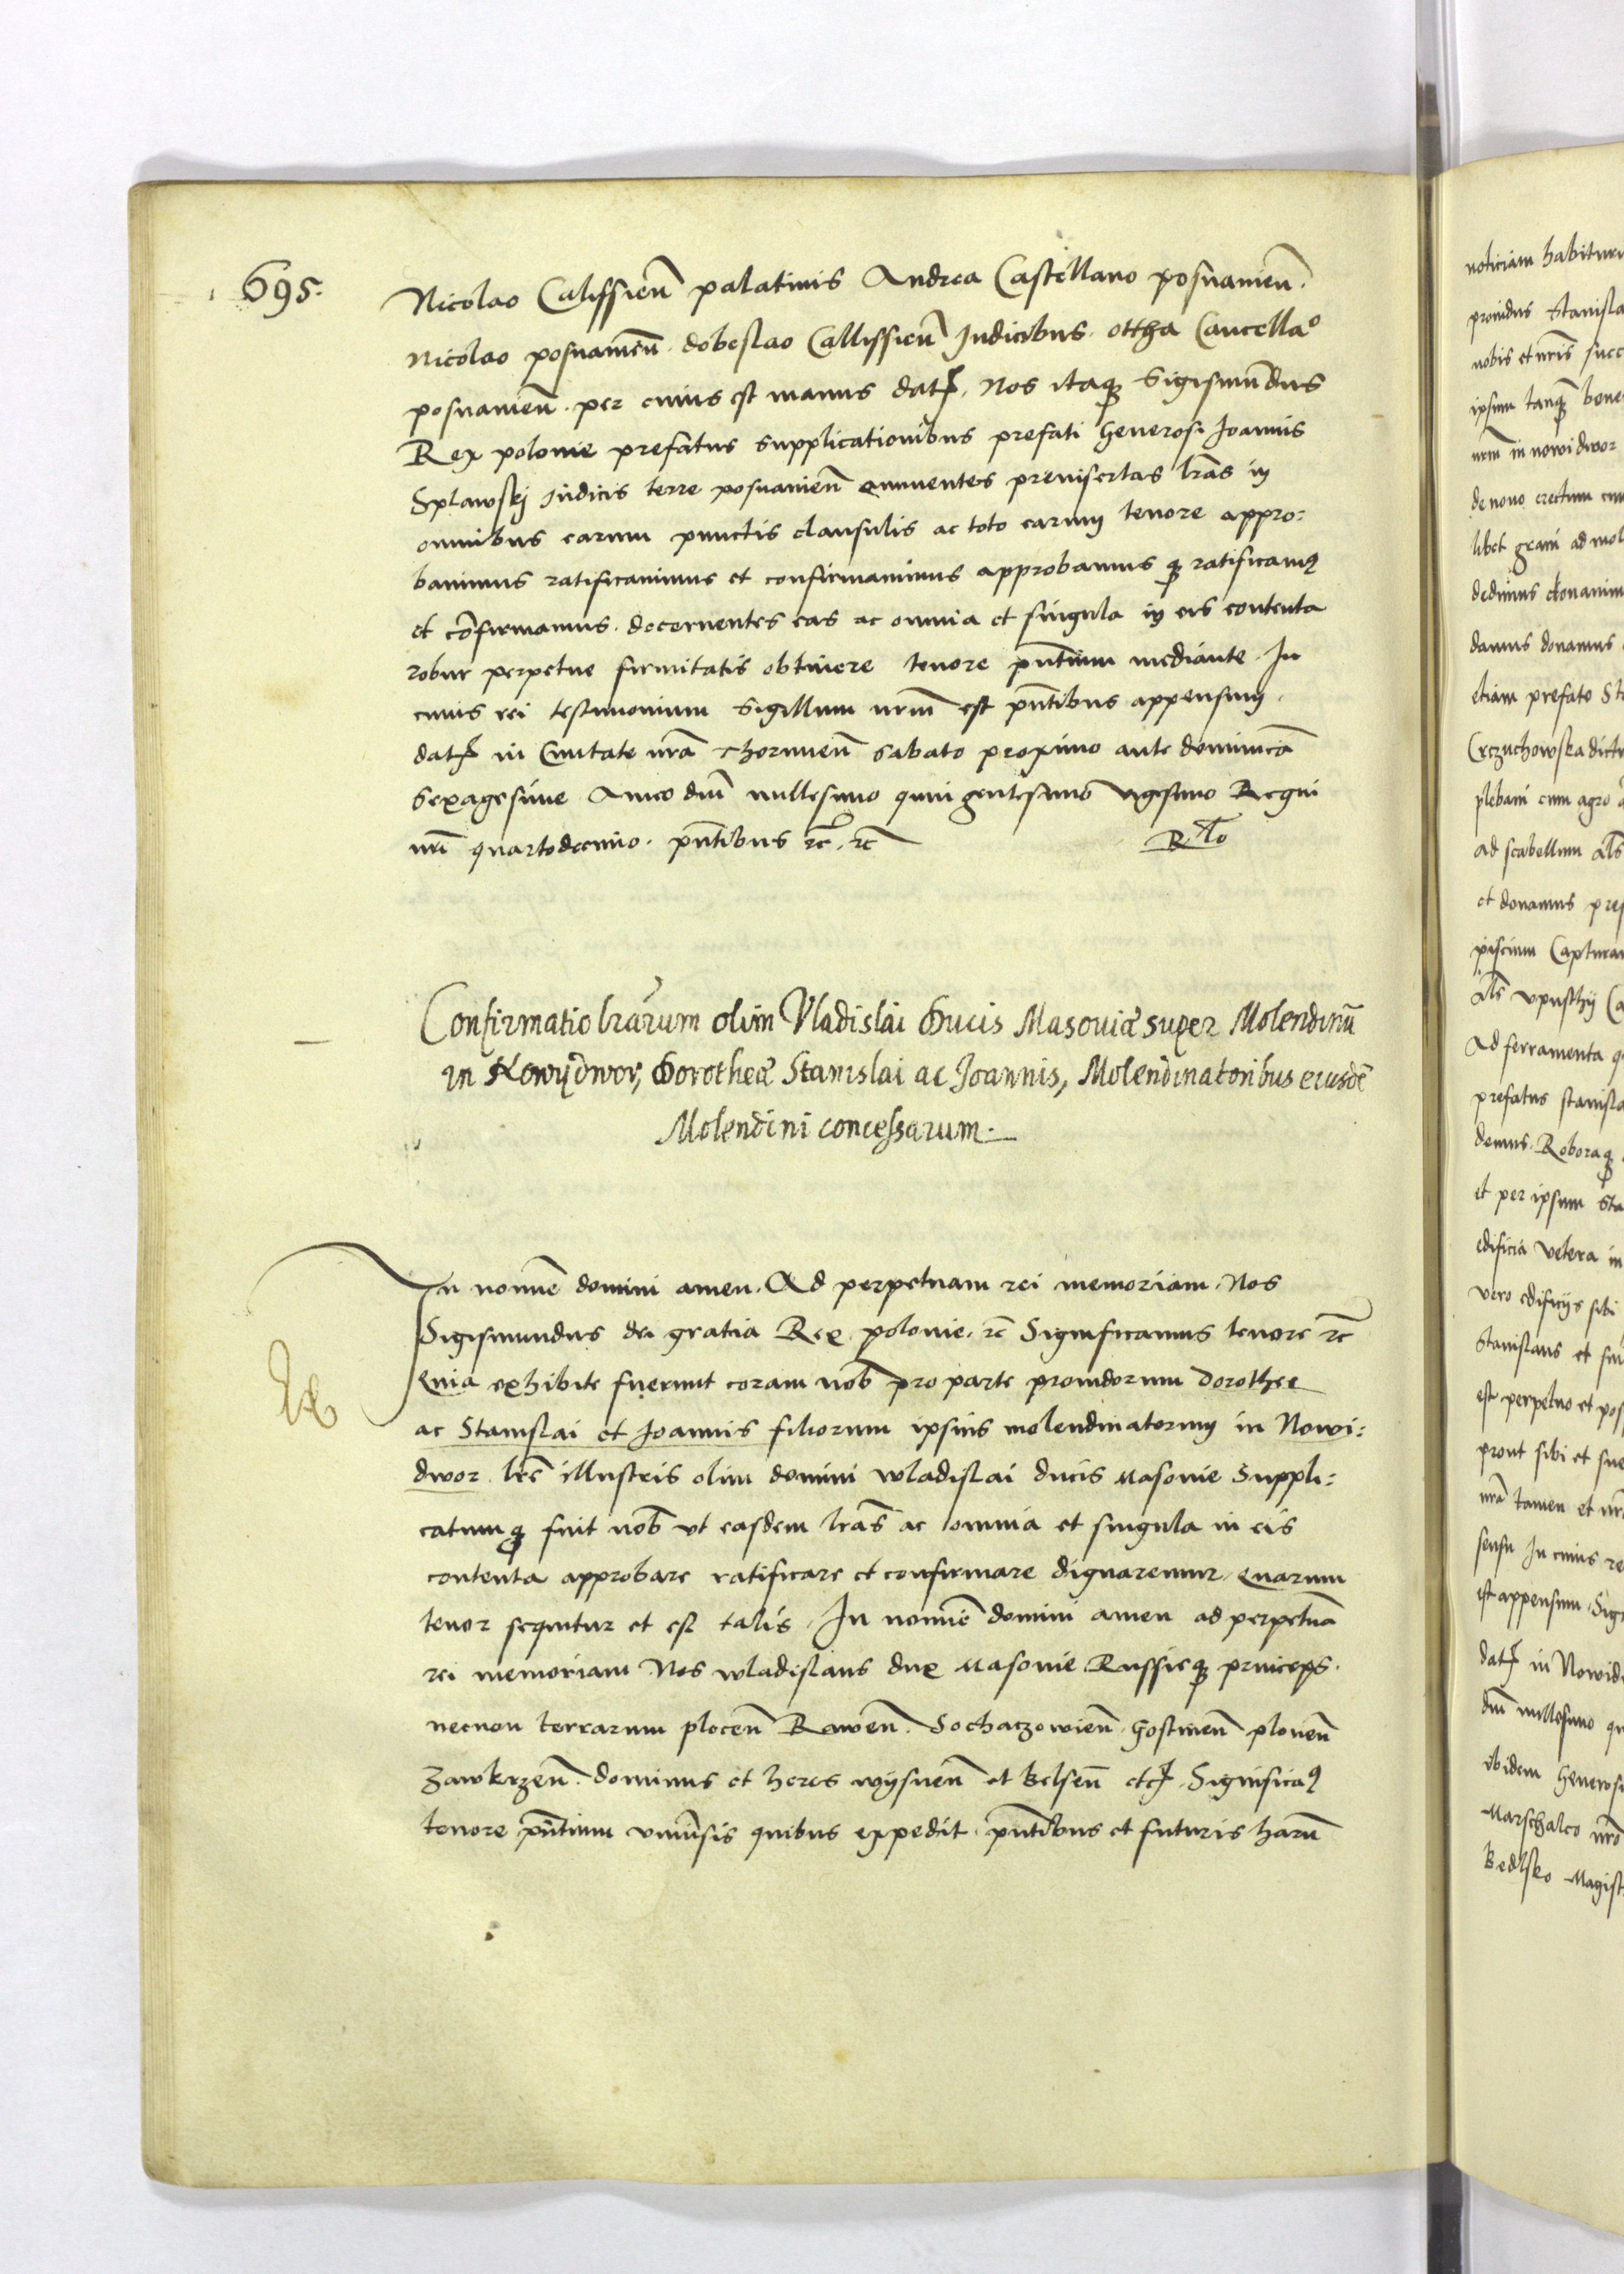 695.
Nicolao Calissien̄ palatinis Andrea Castellano posnanien̄.
Nicolao posnanien̄. dobeslao Callissien̄ Iudicibus. ottha Cancella°
posnanien̄. per cuius est manus dat. Nos itaq; Sigismundus
Rex polonie prefatus supplicationibus prefati Generosi Joannis
Splawskj Iudicis terre posnanien̄ annuentes preinsertas lr̄as in
omnibus earum punctis clausulis ac toto earum tenore appro:
bauimus ratificauimus et confirmauimus approbamus q; ratificamꝰ
et cōfirmamus. decernentes eas ac omnia et singula in eis contenta
robur perpetue firmitatis obtinere tenore pn̄tium mediante. In
cuius rei testimonium Sigillum nrm̄ est pn̄tibus appensum.
dat in Ciuitate nrā Thorunien̄ sabato proximo ante dominicā
Sexagesime Anno dnī millesimo quingentesimo vigesimo Regni
nrī quartodecimo. pn̄tibus zc̄. zc̄
R. To
Confirmatio lr̄arum olim Vladislai Ducis Masouiæ super Molendinū
in Nowÿdwor, Dorotheæ Stanislai ac Joannis, Molendinatoribus eiusdē
Molendini concessarum.
In nomīe domini amen. Ad perpetuam rei memoriam. Nos
Sigismundus dei gratia Rex polonie. zc̄ Significamus tenore zc̄
Quia exhibite fuerunt coram nob̄ pro parte prouidorum Dorothee
ac Stanislai et Joannis filiorum ipsius molendinatorum in Nowi:
dwor lrē illustris olim domini wladislai ducis Masouie Suppli:
catum q; fuit nob̄ vt easdem lrās ac omnia et singula in eis
contenta approbare ratificare et confirmare dignaremur. Quarum
tenor sequitur et est talis. In nomīe domini amen ad perpetuā
rei memoriam Nos wladislaus dux Masouie Russieq; princeps.
necnon terrarum plocen̄ Rawen̄. Sochaczowien̄. Gostinen̄ plonen̄
Zawkrzen̄. dominus et heres wÿsnen̄ et Belsen̄ etc. Significaꝰ
tenore pn̄tium vniūsis quibus expedit. pn̄tibus et futuris harū
noticiam habituru
prouidus Stanisla
nobis et nrīs succ
ipsum tanq; bene
nrm̄ in nowidwor
de nouo erectum cum
libet grani ad mol
dedimus donauim
damus donamus
etiam prefato Sta
Crczuchowska dictu
plebani cum agro
ad scabellum al̄s
et donamus pref
piscium Capturam
al̄s vpusthÿ
Ad ferramenta q
prefatus stanisla
demus. Roboraq;
et per ipsum Sta
edificia vetera in
vero edificijs sibi
Stanislaus et sui
est perpetuo et pos
prout sibi et sue
nrā tamen et nr
sensu In cuius re
est appensum. Sig
dat in Nowid
dnī millesimo qu
ibidem Generosi
Marschalco nrō
Bedlsko Magist